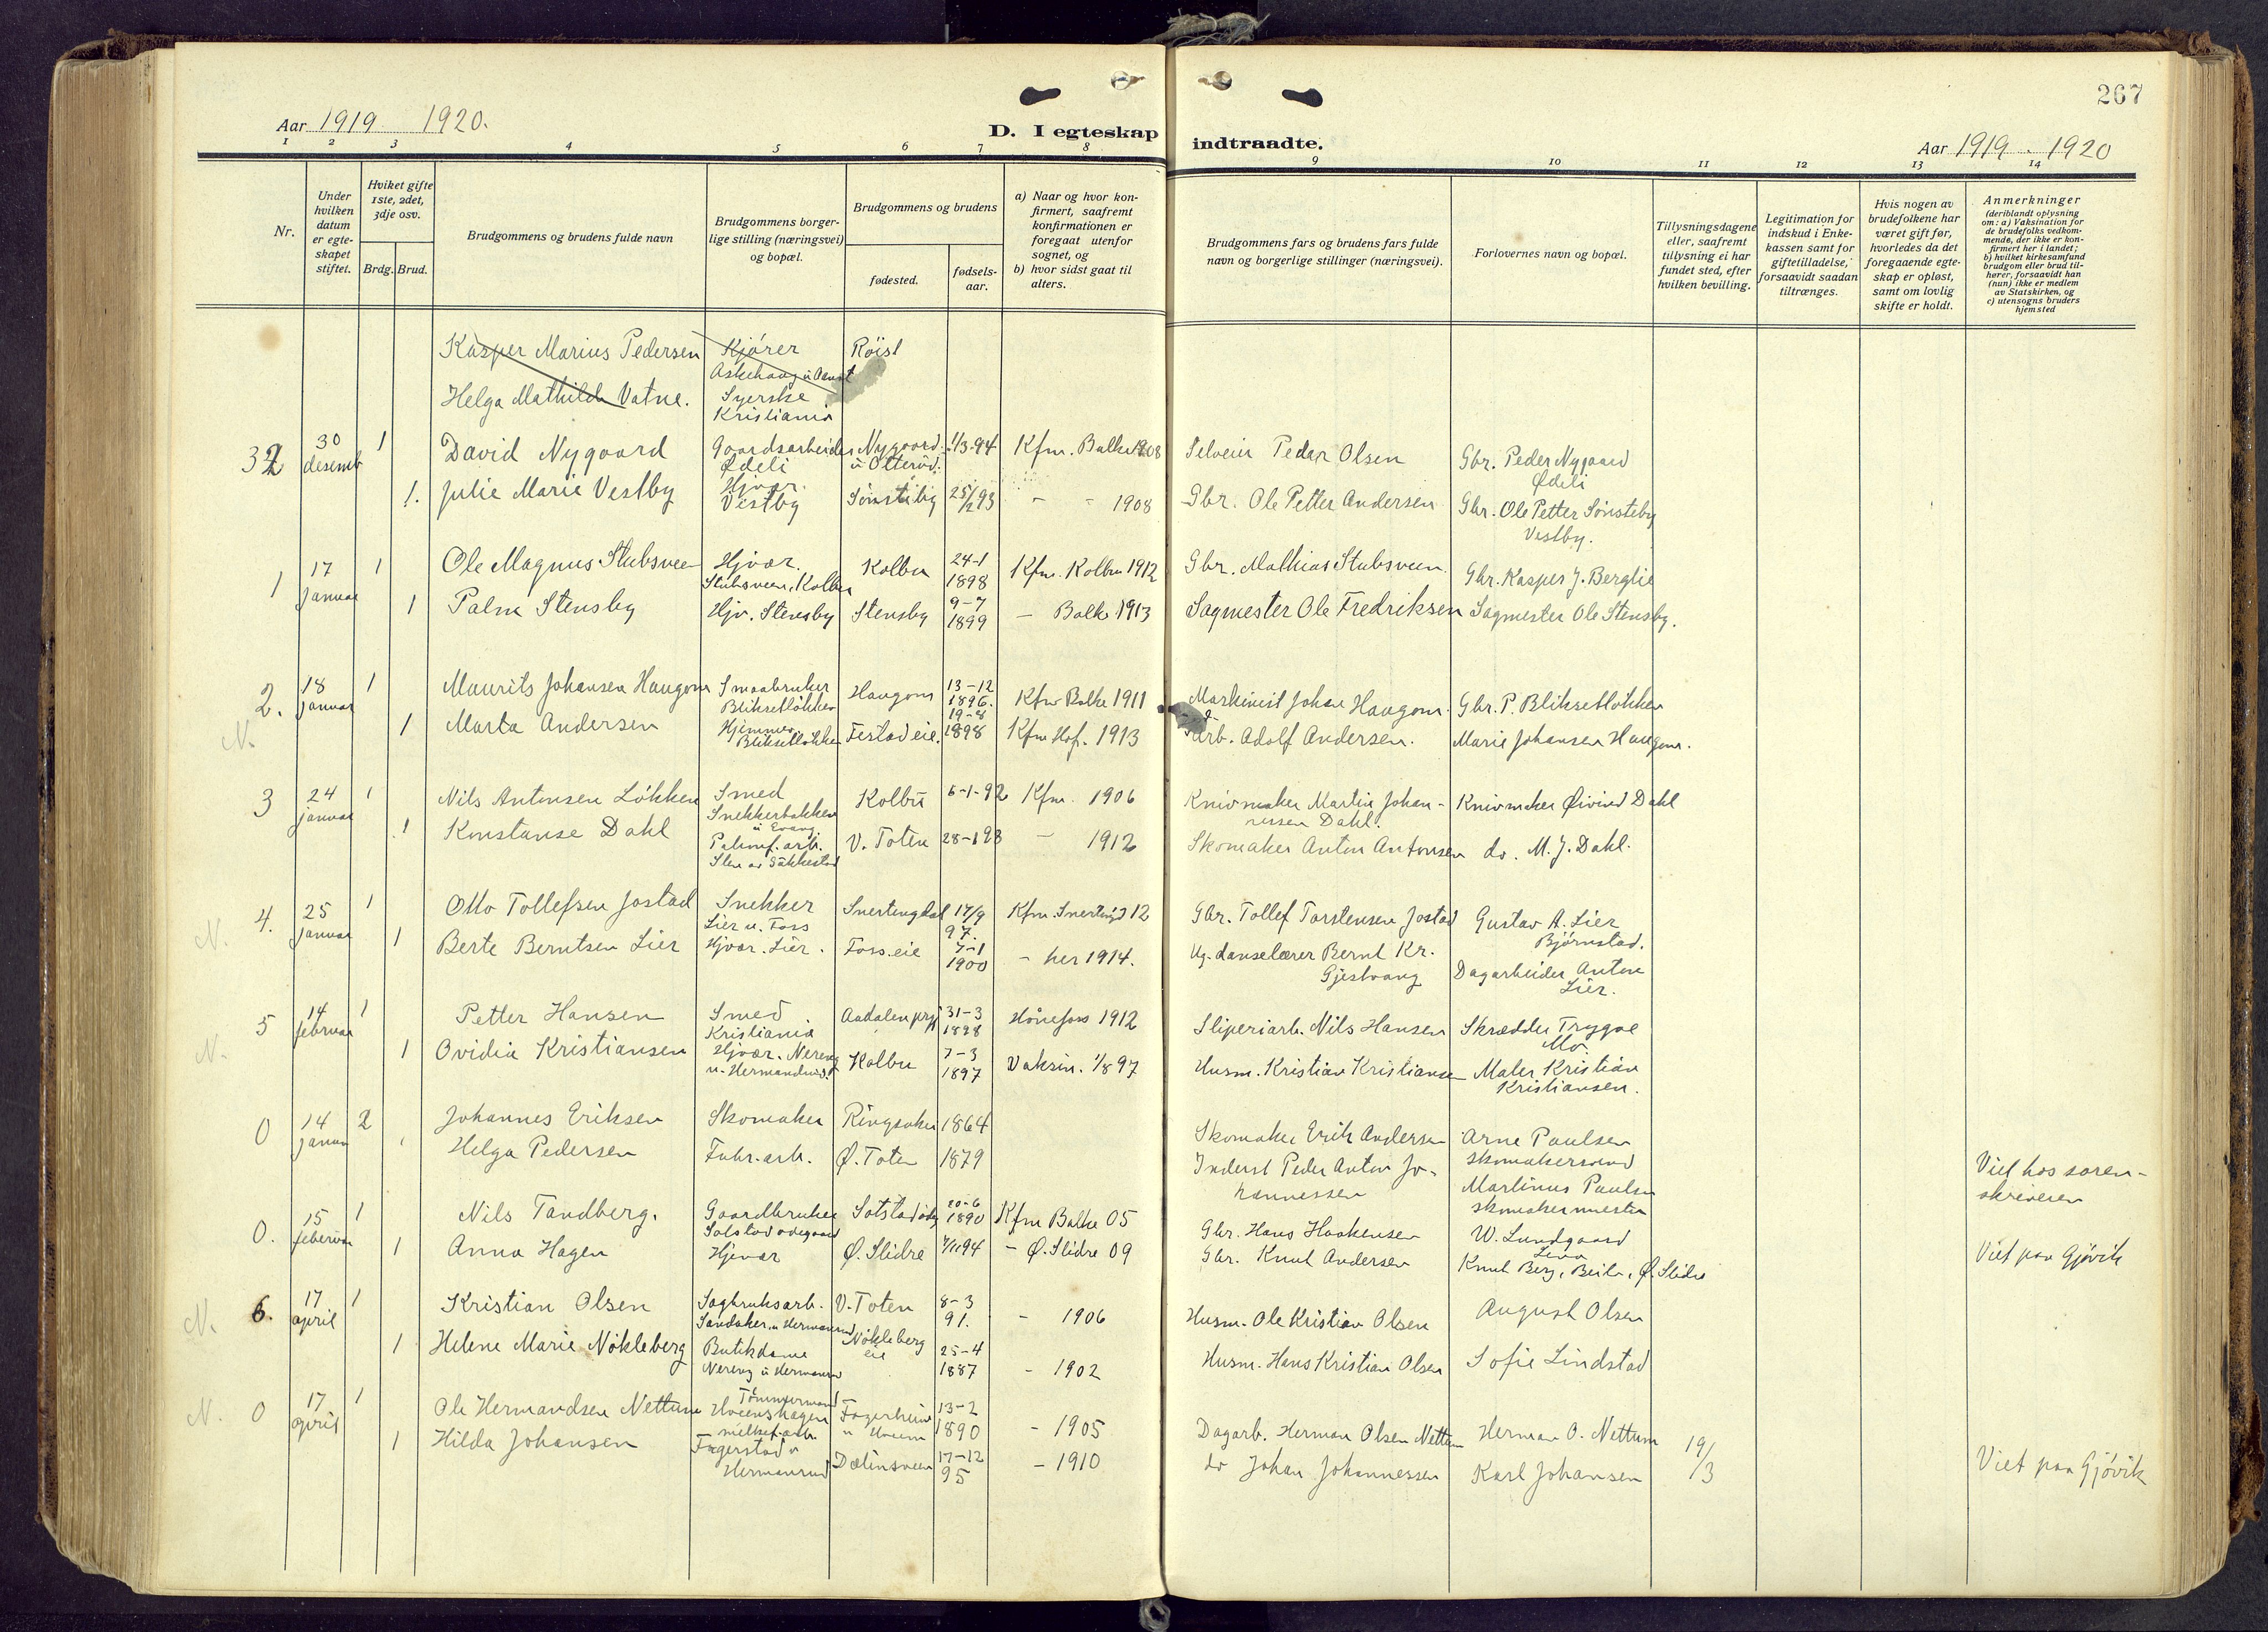 267
Aar 1919 1920.
D. I egteskap indtraadte.
Aar 1919 - 1920
1 2 3 4 5 6 7 8 9 10 11 12 13 14
Nr.
Under hvilken datum er egteskapet stiftet.
Hviket gifte 1ste, 2det, 3dje osv.
Brdg. Brud.
Brudgommens og brudens fulde navn
Brudgommens borgerlige stilling (næringsvei) og bopæl.
Brudgommens og brudens
fødested.
fødselsaar.
a) Naar og hvor konfirmert, saafremt konfirmationen er foregaat utenfor sognet, og
b) hvor sidst gaat til alters.
Brudgommens fars og brudens fars fulde navn og borgerlige stillinger (næringsvei).
Forlovernes navn og bopæl.
Tillysningsdagene eller, saafremt tillysning ei har fundet sted, efter hvilken bevilling.
Legitimation for indskud i Enkekassen samt for giftetilladelse, forsaavidt saadan tiltrænges.
Hvis nogen av brudefolkene har været gift før, hvorledes da det foregaaende egteskap er opløst, samt om lovlig skifte er holdt.
Anmerkninger
(deriblandt oplysning om: a) Vaksination for de brudefolks vedkommende, der ikke er konfirmert her i landet; b) hvilket kirkesamfund brudgom eller brud tilhører, forsaavidt han (hun) ikke er medlem av Statskirken, og c) utensogns bruders hjemsted
Kasper Marius Pedersen Kjører Røist
Askehaug u
Helga Mathilde Vatne. Syerske
Kristiania
32 30 desemb 1 David Nygaard Gaardsarbeider Ødeli Nygaard u Otterud. 1/3-94 Kfm. Balke 1908 Selveier Peder Olsen Gbr. Peder Nygaard Ødeli
1. Julie Marie Vestby Hjvær. Vestby Sønsteby 25/12 93 - - 1908 Gbr. Ole Petter Andersen Gbr. Ole Petter Sønsteby Vestby.
1 17 januar 1 Ole Magnus Stubsveen Hjvær. Stubsveen, Kolbu Kolbu 24-1 1898 Kfm. Kolbu 1912 Gbr. Mathias Stubsveen. Gbr. Kasper J. Berglie
1 Palma Stensby Hjv. Stensby Stensby 9-7 1899 - Balke 1913 Sagmester Ole Fredriksen Sagmester Ole Stensby.
2. 18 januar 1 Maurits Johansen Haugom Smaabruker Bliksetløkken Haugom 13-12 1896. Kfm Balke 1911 Maskinist Johan Haugom. Gbr. P. Bliksetløkken
N. 1 Marta Andersen Hjemmev. Bliksetløkken Festad eie. 19-8 1898 Kfm Hof. 1913 Arb. Adolf Andersen. Marie Johansen Haugom.
3 24 januar 1 Nils Antonsen Løkken Smed Snekkerbakken u Evang. Kolbu 6-1-92 Kfm. 1906 Knivmaker Martin Johannessen Dahl. Knivmaker Øivind Dahl
1 Konstanse Dahl V. Toten 28-1 93 - 1912 Skomaker Anton Antonsen do. M. J. Dahl.
N. 4. 25 januar 1 Otto Tollefsen Jostad Snekker Lier u. Foss Snertingdal 17/9 97. Kfm. Snertingd 12 Gbr. Tollef Torstensen Jostad Gustav A. Lier Bjørnstad.
1 Berte Berntsen Lier Hjvær. Lier. Foss eie 7-1 1900 - her 1914. Ug. danselærer Bernt Kr. Gjestvang Dagarbeider Anton Lier.
N. 5 14 februar 1 Petter Hansen Smed Kristiania Aadalen prgj 31-3 1898 Hønefoss 1912 Sliperiarb. Nils Hansen Skrædder Trygve Mo.
1 Ovidia Kristiansen Hjvær. Nereng u. Hermandrud. Kolbu 7-3 1897 Vaksin. 1/8 97 Husm. Kristian Kristiansen Maler Kristian Kristiansen.
0 14 januar 2 Johannes Eriksen Skomaker Ringsaker 1864 Skomaker Erik Andersen Arne Paulsen skomakersvend
Helga Pedersen Fabr. arb. Ø. Toten 1879 Inderst Peder Anton Johannessen Martinus Paulsen skomakermester Viet hos sorenskriveren
0. 15 februar 1 Nils Tandberg. Gaardbruker Sølstad Sølstad ødeg 20-6 1890 Kfm Balke 05 Gbr. Hans Haakensen W. Lundgaard Lena
1 Anna Hagen Hjevær Ø. Slidre 7/11 94 - Ø. Slidre 09 Gbr. Knut Andersen Knut Berg, Beito, Ø. Slidre Viet paa Gjøvik
N. 6. 17 april 1 Kristian Olsen Sagbruksarb. Sandaker u Hermanrud V. Toten 8-3 91. - 1906 Husm. Ole Kristian Olsen August Olsen
1 Helene Marie Nøkleberg Butikdame Nereng u Hermanrud Nøkleberg eie 25-4 1887 - 1902 Husm. Hans Kristian Olsen Sofie Lindstad
N. 0 17 april 1 Ole Hermandsen Nettum Tømmermand Hveenshagen Fagerheim u Hveem 13-2 1890 - 1905 Dagarb. Herman Olsen Nettum Herman O. Nettum 19/3
1 Hilda Johansen melkef. arb. Fagerstad u Hermanrud Dælinsveen 17-12 95 - 1910 do Johan Johannessen Karl Johansen Viet paa Gjøvik